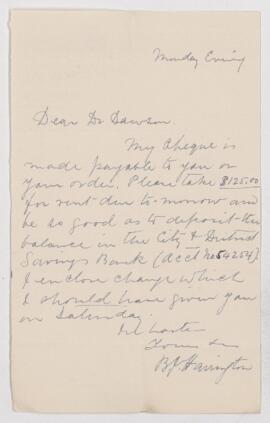 Monday Evening
Dear Dr Dawson.
My cheque is
made payable to you or
your order. Please take $125.00
for rent due to-morrow and
be so good as to deposit the
balance in the City & District
Savings Bank (acct No 54254)
I enclose change which
I should have given you
on Saturday.
In haste
Yours
B.J. Harrington